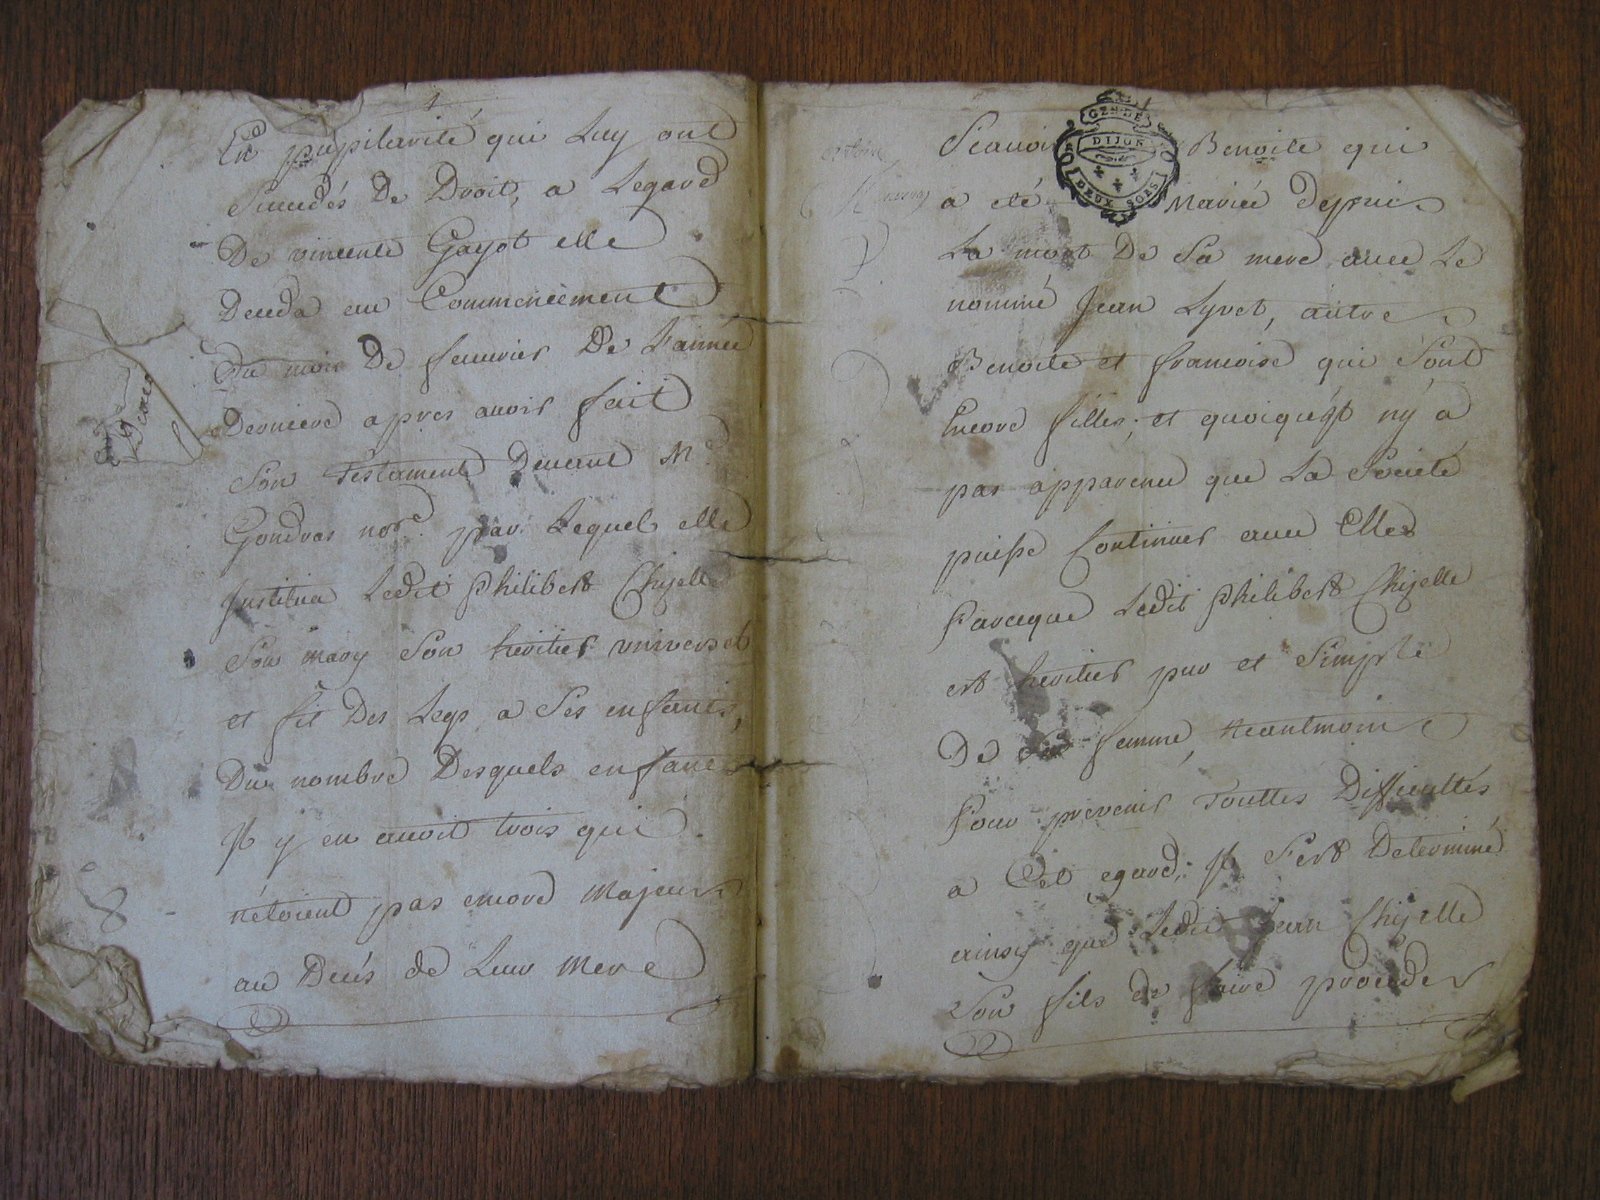 En pupilarité qui Luy ont
Succedés De Droit, a Legard
De vincente Gayot elle
Deceda au Commencement
Du mois De fevvrier De L'année
Derniere apres avoir fait
Son Testament Devant Me
Gondras nore. par Lequel elle
Institua Ledit Philibert Chizelle
Son mary Son heritier universel
et fit Des Legs a Ses enfants,
Du nombre Desquels enfants
Il y en avoit trois qui
n'étoient pas encore Majeurs
au Decés de Leur Mere
Scavoir Benoite qui
a eté Mariée Depuis
La mort De Sa mere avec Le
nommé Jean Lyvet, autre
Benoite et francoise qui Sont
Encore filles; et quoiqu'il n'y a
pas apparence que La Societé
puisse Continuer avec Elles
Parceque Ledit Philibert Chizelle
est heritier pur et Simple
De Sa femme, Neantmoins
Pour prevenir Touttes Difficultés
a Cet egard; Il S'est Determiné
ainsy que Ledit Jean Chizelle
Son fils de faire proceder
GEN. DE
DIJON
DEUX SOLS